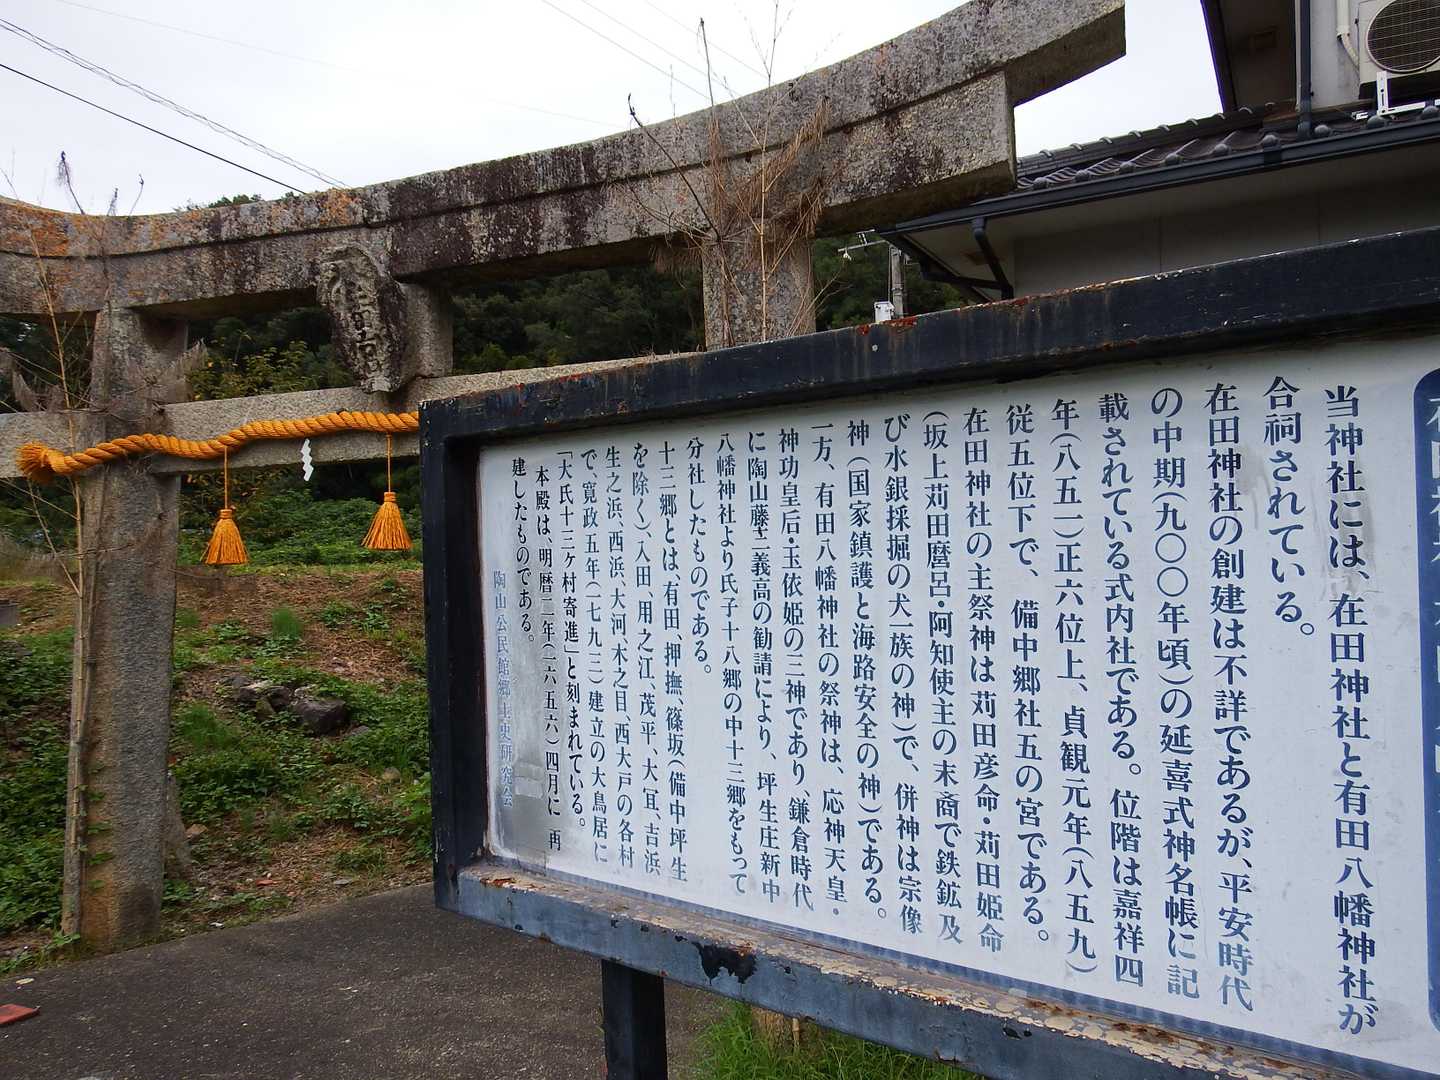 当神社には、在田神社と有田八幡神社が
合祠されている。
在田神社の創建は不詳であるが、平安時代
の中期(九〇〇年頃)の延喜式神名帳に記
載されている式内社である。位階は嘉祥四
年(八五一)正六位上、貞観元年(八五九)
従五位下で、備中郷社五の宮である。
在田神社の主祭神は苅田彦命・苅田姫命
(坂上苅田麿呂・阿知使主の末裔で鉄鉱及
び水銀採掘の犬一族の神)で、併神は宗像
神(国家鎮護と海路安全の神)である。
一方、有田八幡神社の祭神は、応神天皇・
神功皇后・玉依姫の三神であり、鎌倉時代
に陶山藤三義高の勧請により、坪生庄新中
八幡神社より氏子十八郷の中十三郷をもって
分社したものである。
十三郷とは、有田、押撫、篠坂(備中坪生
を除く)、入田、用之江、茂平、大冝、吉浜
生之浜、西浜、大河、木之目、西大戸の各村
で、寛政五年(一七九三)建立の大鳥居に
「大氏十三ヶ村寄進」と刻まれている。
本殿は、明暦二年(一六五六)四月に再
建したものである。
陶山公民館郷土史研究会